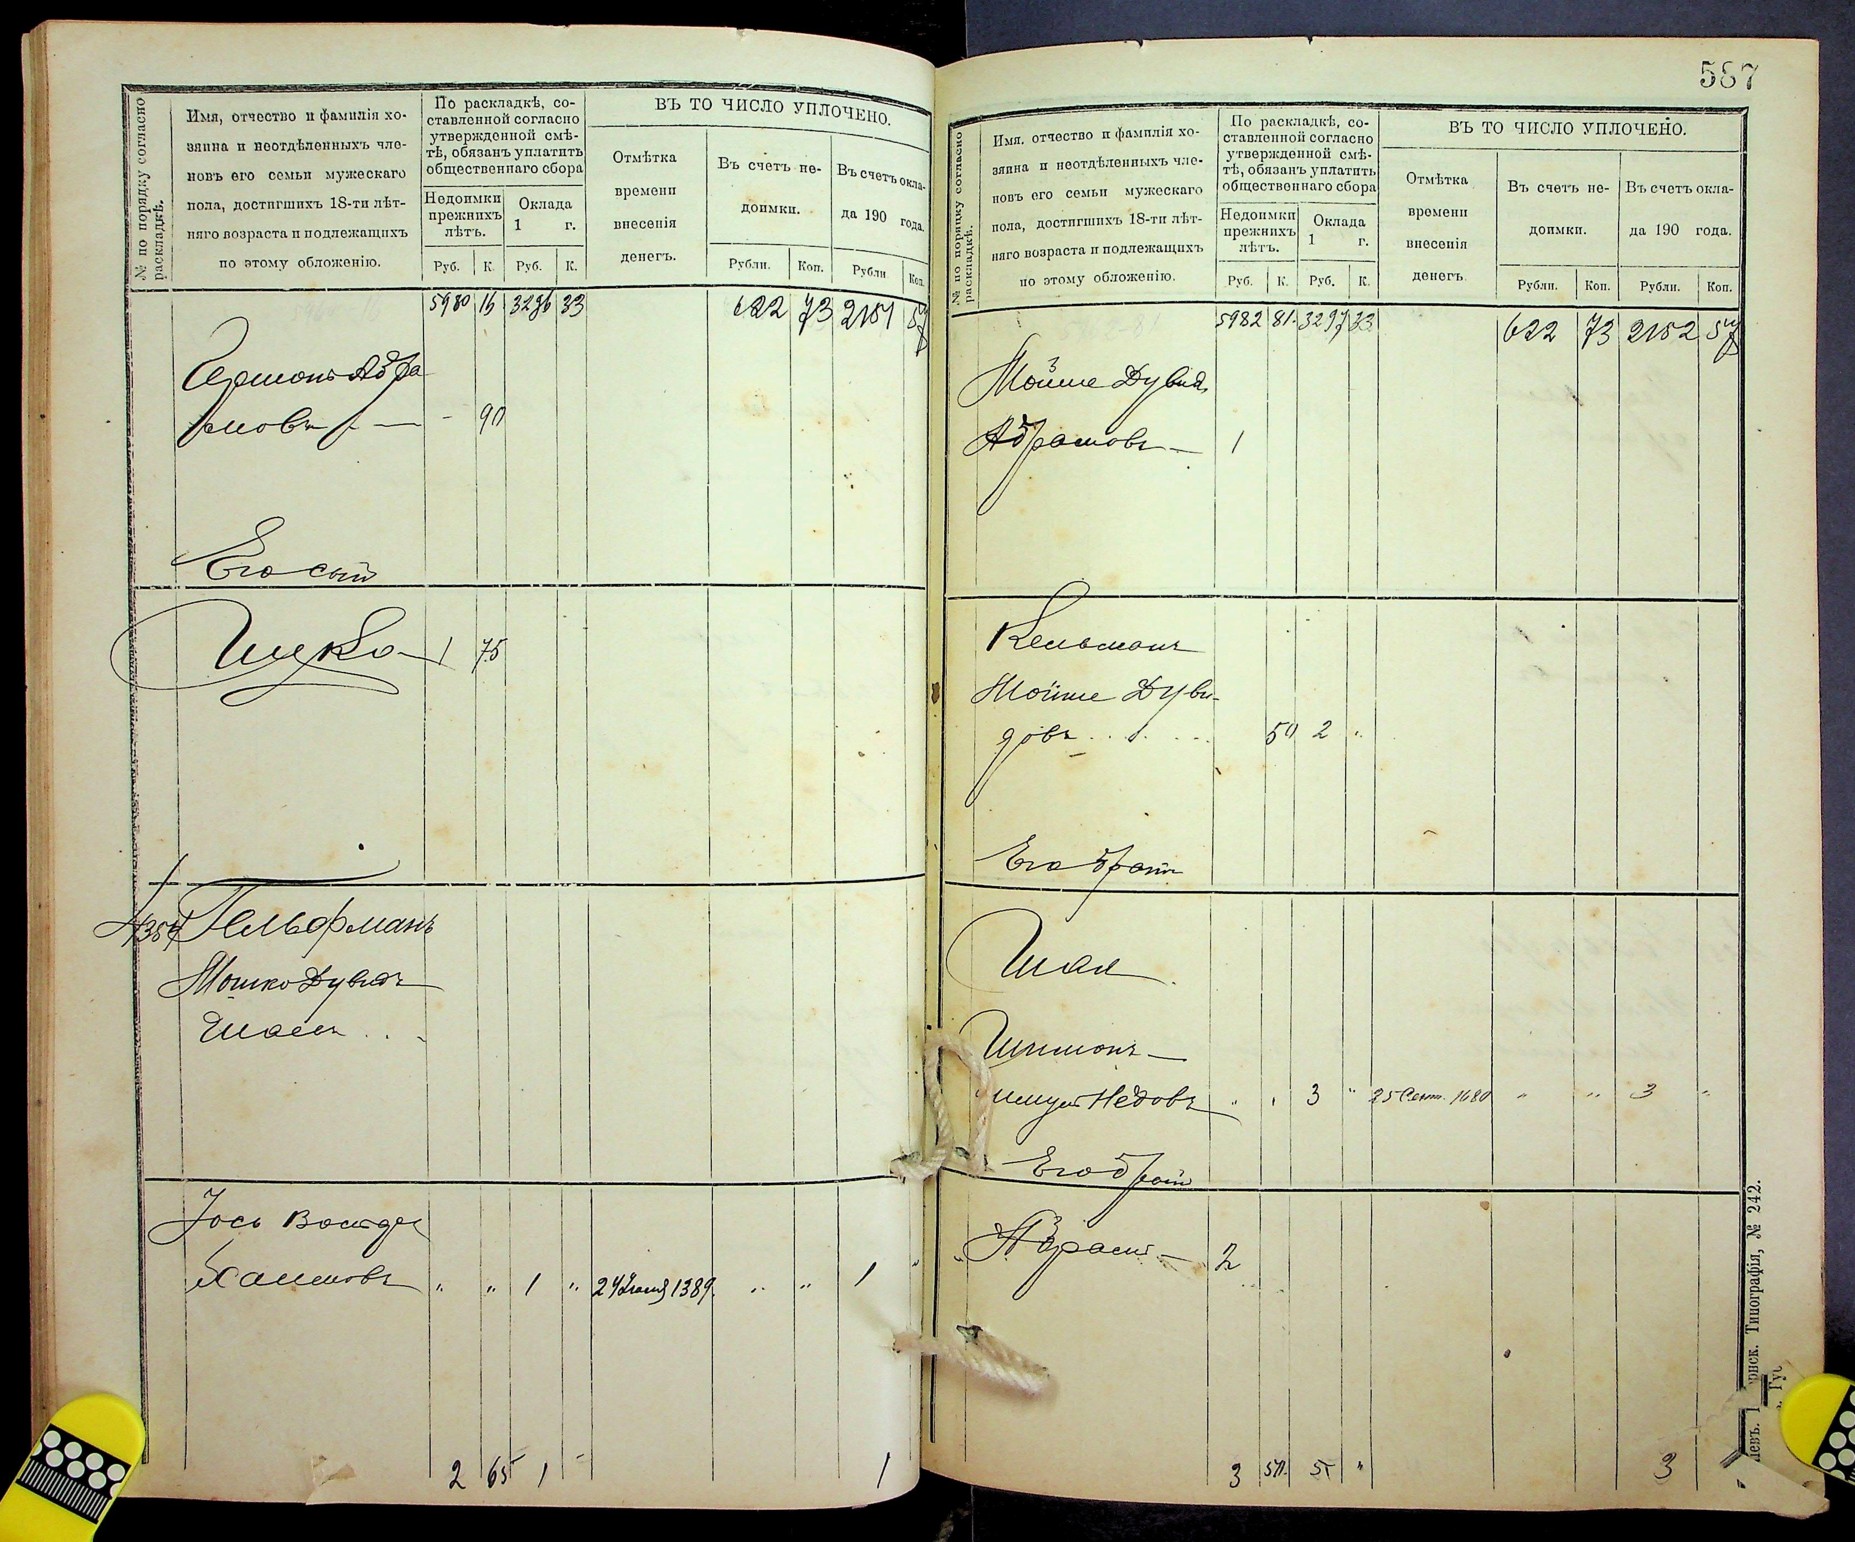 № по порядку согласно раскладкѣ.
Имя, отчество и фамилія хо-
зяина и неотдѣленныхъ чле-
новъ его семьи мужескаго
пола, достигшихъ 18-ти лѣт-
няго возраста и подлежащихъ
по этому обложенію.
По раскладкѣ, со-
ставленной согласно
утвержденной смѣ-
тѣ, обязанъ уплатить
общественнаго сбора
Недоимки прежнихъ лѣтъ.
Оклада 1 г.
Руб. К. Руб. К.
ВЪ ТО ЧИСЛО УПЛОЧЕНО.
Отмѣтка
времени
внесенія
денегъ.
Въ счетъ не-
доимки.
Рубли. Коп.
Въ счетъ окла-
да 190 года.
Рубли Коп.
5980 16 3296 33 622 73 2151 57
Абра
мовъ — - 90
Его сынъ
Ицко 1 75
1354 Гельфманъ
Мошко Дувидъ
Іось
Хаимовъ " " 1 " 24 1389 " " 1 "
2 65 1 - 1
587
№ по порядку согласно раскладкѣ.
Имя, отчество и фамилія хо-
зяина и неотдѣленныхъ чле-
новъ его семьи мужескаго
пола, достигшихъ 18-ти лѣт-
няго возраста и подлежащихъ
по этому обложенію.
По раскладкѣ, со-
ставленной согласно
утвержденной смѣ-
тѣ, обязанъ уплатить
общественнаго сбора
Недоимки прежнихъ лѣтъ.
Оклада 1 г.
Руб. К. Руб. К.
ВЪ ТО ЧИСЛО УПЛОЧЕНО.
Отмѣтка
времени
внесенія
денегъ
Въ счетъ не-
доимки.
Рубли. Коп.
Въ счетъ окла-
да 190 года.
Рубли. Коп.
5982 81 3297 33 622 73 2152 57
Мойше Дувид
Абрамовъ — 1
Кельманъ
Мойше Дуви-
довъ 50 2 "
Его братъ
Шая
Шимонъ —
" " 3 " 25 Сент. 1680 " " 3 "
Его братъ
Абрамъ — 2
3 50 5 " 3 "
Типографія, № 242.